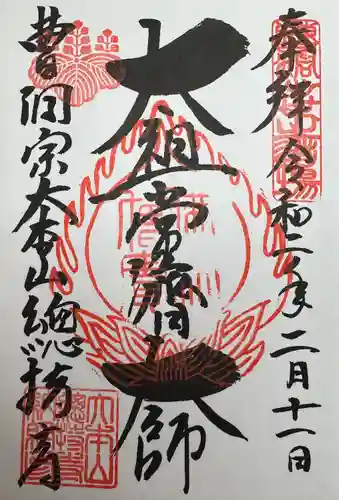 奉拝 令和二年二月十一日
太祖常濟大師
曹洞宗大本山總持寺